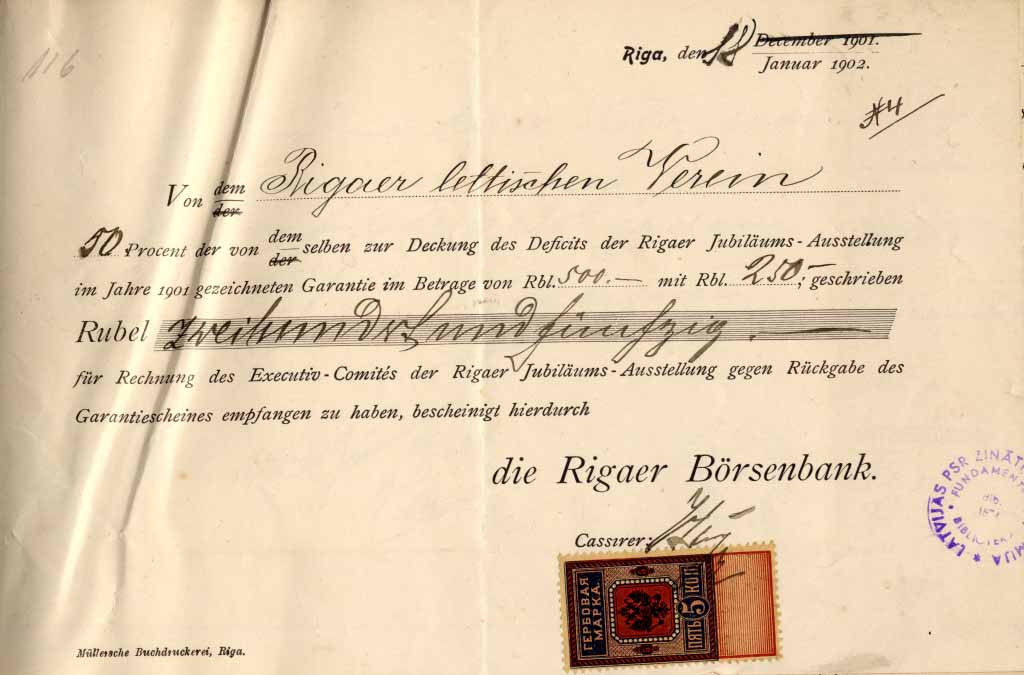 116
Riga, den 18 December 1901.
Januar 1902.
#4
Von dem Rigaer lettischen Verein
der
50 Procent der von dem selben zur Deckung des Deficits der Rigaer Jubiläums-Ausstellung
der
im Jahre 1901 gezeichneten Garantie im Betrage von Rbl. 500.— mit Rbl. 250,— geschrieben
Rubel zweihundert und fünfzig. —
für Rechnung des Executiv-Comités der Rigaer Jubiläums-Ausstellung gegen Rückgabe des
Garantiescheines empfangen zu haben, bescheinigt hierdurch
die Rigaer Börsenbank.
Cassirer:
ГЕРБОВАЯ
МАРКА.
5
ПЯТЬ КОП.
LATVIJAS PSR ZINĀT
FUNDAMENT
dib.
BIBLIOTEKA
MIJA
Müllersche Buchdruckerei, Riga.